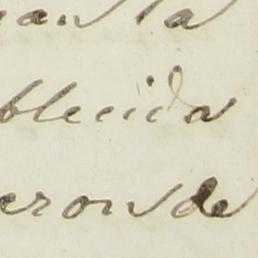 la
blecida
eron de